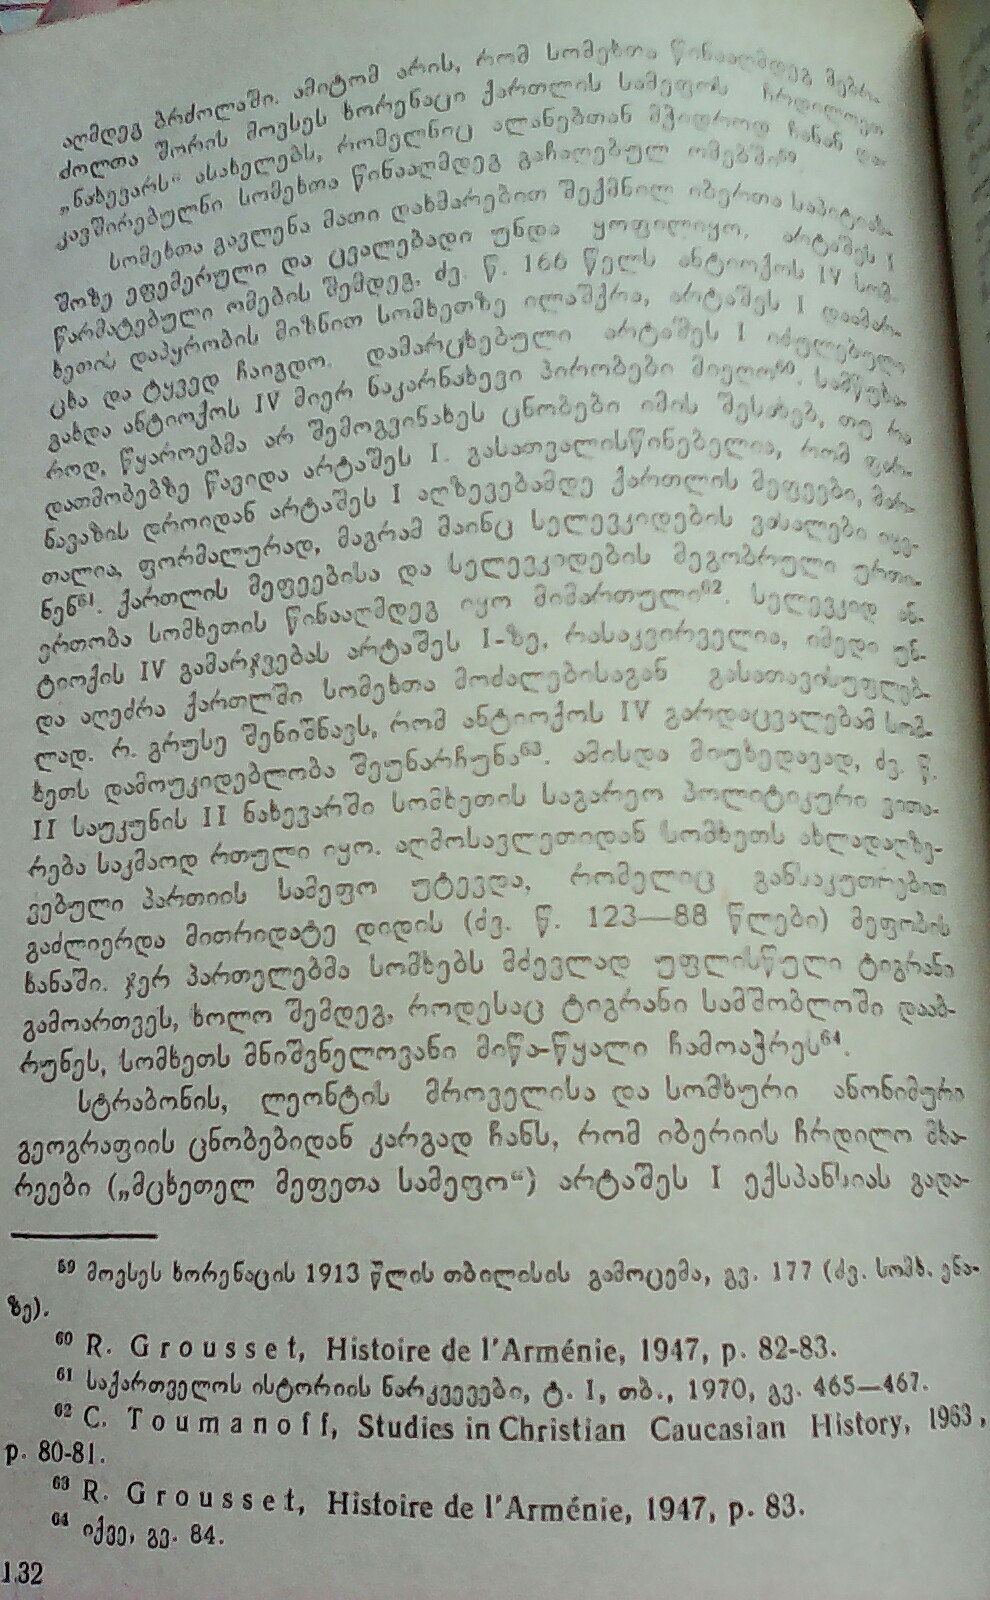 აღმდეგ ბრძოლაში. ამიტომ არის, რომ სომეხთა წინააღმდეგ მებრ-
ძოლთა შორის მოვსეს ხორენაცი ქართლის სამეფოს ჩრდილოეთ
„ნახევარს“ ასახელებს, რომელნიც ალანებთან მჭიდროდ ჩანან და-
კავშირებულნი სომეხთა წინააღმდეგ გაჩაღებულ ომებში⁵⁹.
სომეხთა გავლენა მათი დახმარებით შექმნილ იბერთა საპიტიახ-
შოზე ეფემერული და ცვალებადი უნდა ყოფილიყო. არტაშეს I
წარმატებული ომების შემდეგ, ძვ. წ. 166 წელს ანტიოქოს IV სომ-
ხეთის დაპყრობის მიზნით სომხეთზე ილაშქრა, არტაშეს I დაამარ-
ცხა და ტყვედ ჩაიგდო. დამარცხებული არტაშეს I იძულებული
გახდა ანტიოქოს IV მიერ ნაკარნახევი პირობები მიეღო⁶⁰. სამწუხა-
როდ, წყაროებმა არ შემოგვინახეს ცნობები იმის შესახებ, თუ რა
დათმობებზე წავიდა არტაშეს I. გასათვალისწინებელია, რომ ფარ-
ნავაზის დროიდან არტაშეს I აღზევებამდე ქართლის მეფეები, მარ-
თალია, ფორმალურად, მაგრამ მაინც სელევკიდების ვასალები იყვ-
ნენ⁶¹. ქართლის მეფეებისა და სელევკიდების მეგობრული ურთი-
ერთობა სომხეთის წინააღმდეგ იყო მიმართული⁶². სელევკიდ ან-
ტიოქის IV გამარჯვებას არტაშეს I-ზე, რასაკვირველია, იმედი უნ-
და აღეძრა ქართლში სომეხთა მოძალებისაგან გასათავისუფლებ-
ლად. რ. გრუსე შენიშნავს, რომ ანტიოქოს IV გარდაცვალებამ სომ-
ხეთს დამოუკიდებლობა შეუნარჩუნა⁶³. ამისდა მიუხედავად, ძვ. წ.
II საუკუნის II ნახევარში სომხეთის საგარეო პოლიტიკური ვითა-
რება საკმაოდ რთული იყო. აღმოსავლეთიდან სომხეთს ახლადაღზე-
ვებული პართიის სამეფო უტევდა, რომელიც განსაკუთრებით
გაძლიერდა მითრიდატე დიდის (ძვ. წ. 123—88 წლები) მეფობის
ხანაში. ჯერ პართელებმა სომხებს მძევლად უფლისწული ტიგრანი
გამოართვეს, ხოლო შემდეგ, როდესაც ტიგრანი სამშობლოში დააბ-
რუნეს, სომხეთს მნიშვნელოვანი მიწა-წყალი ჩამოაჭრეს⁶⁴.
სტრაბონის, ლეონტის მროველისა და სომხური ანონიმური
გეოგრაფიის ცნობებიდან კარგად ჩანს, რომ იბერიის ჩრდილო მხა-
რეები („მცხეთელ მეფეთა სამეფო“) არტაშეს I ექსპანსიას გადა-
⁵⁹ მოვსეს ხორენაცის 1913 წლის თბილისის გამოცემა, გვ. 177 (ძვ. სომხ. ენა-
ზე).
⁶⁰ R. Grousset, Histoire de l'Arménie, 1947, p. 82-83.
⁶¹ საქართველოს ისტორიის ნარკვევები, ტ. I, თბ., 1970, გვ. 465—467.
⁶² C. Toumanoff, Studies in Christian Caucasian History, 1963,
p. 80-81.
⁶³ R. Grousset, Histoire de l'Arménie, 1947, p. 83.
⁶⁴ იქვე, გვ. 84.
132